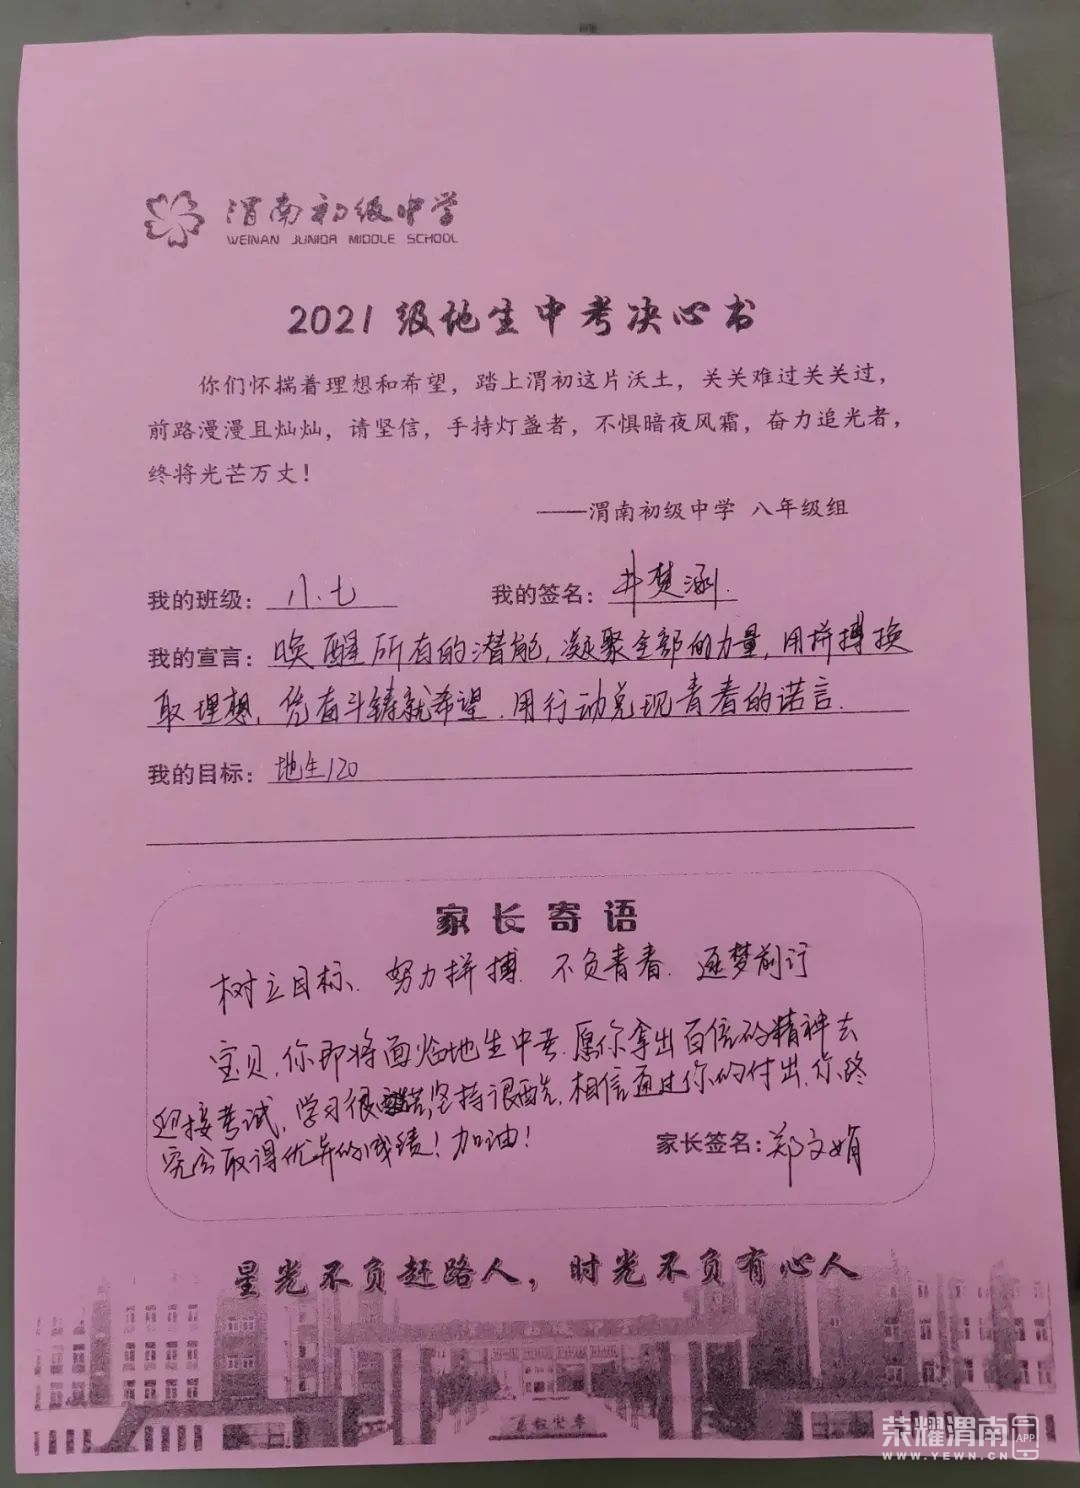 渭南初级中学
WEINAN JUNIOR MIDDLE SCHOOL
2021级地生中考决心书
你们怀揣着理想和希望，踏上渭初这片沃土，关关难过关关过，
前路漫漫且灿灿，请坚信，手持灯盏者，不惧暗夜风霜，奋力追光者，
终将光芒万丈！
——渭南初级中学 八年级组
我的班级： 八.七 我的签名： 井楚涵.
我的宣言： 唤醒所有的潜能,凝聚全部的力量,用拼搏换
取理想,凭奋斗铸就希望.用行动兑现青春的诺言.
我的目标： 地生120
家长寄语
树立目标.努力拼搏.不负青春.逐梦前行
宝贝,你即将面临地生中考.愿你拿出百倍的精神去
迎接考试,学习很苦,坚持很酷,相信通过你的付出,你终
究会取得优异的成绩！加油！ 家长签名：郑文娟
星光不负赶路人，时光不负有心人
荣耀渭南 APP
WWW.YEWN.CN